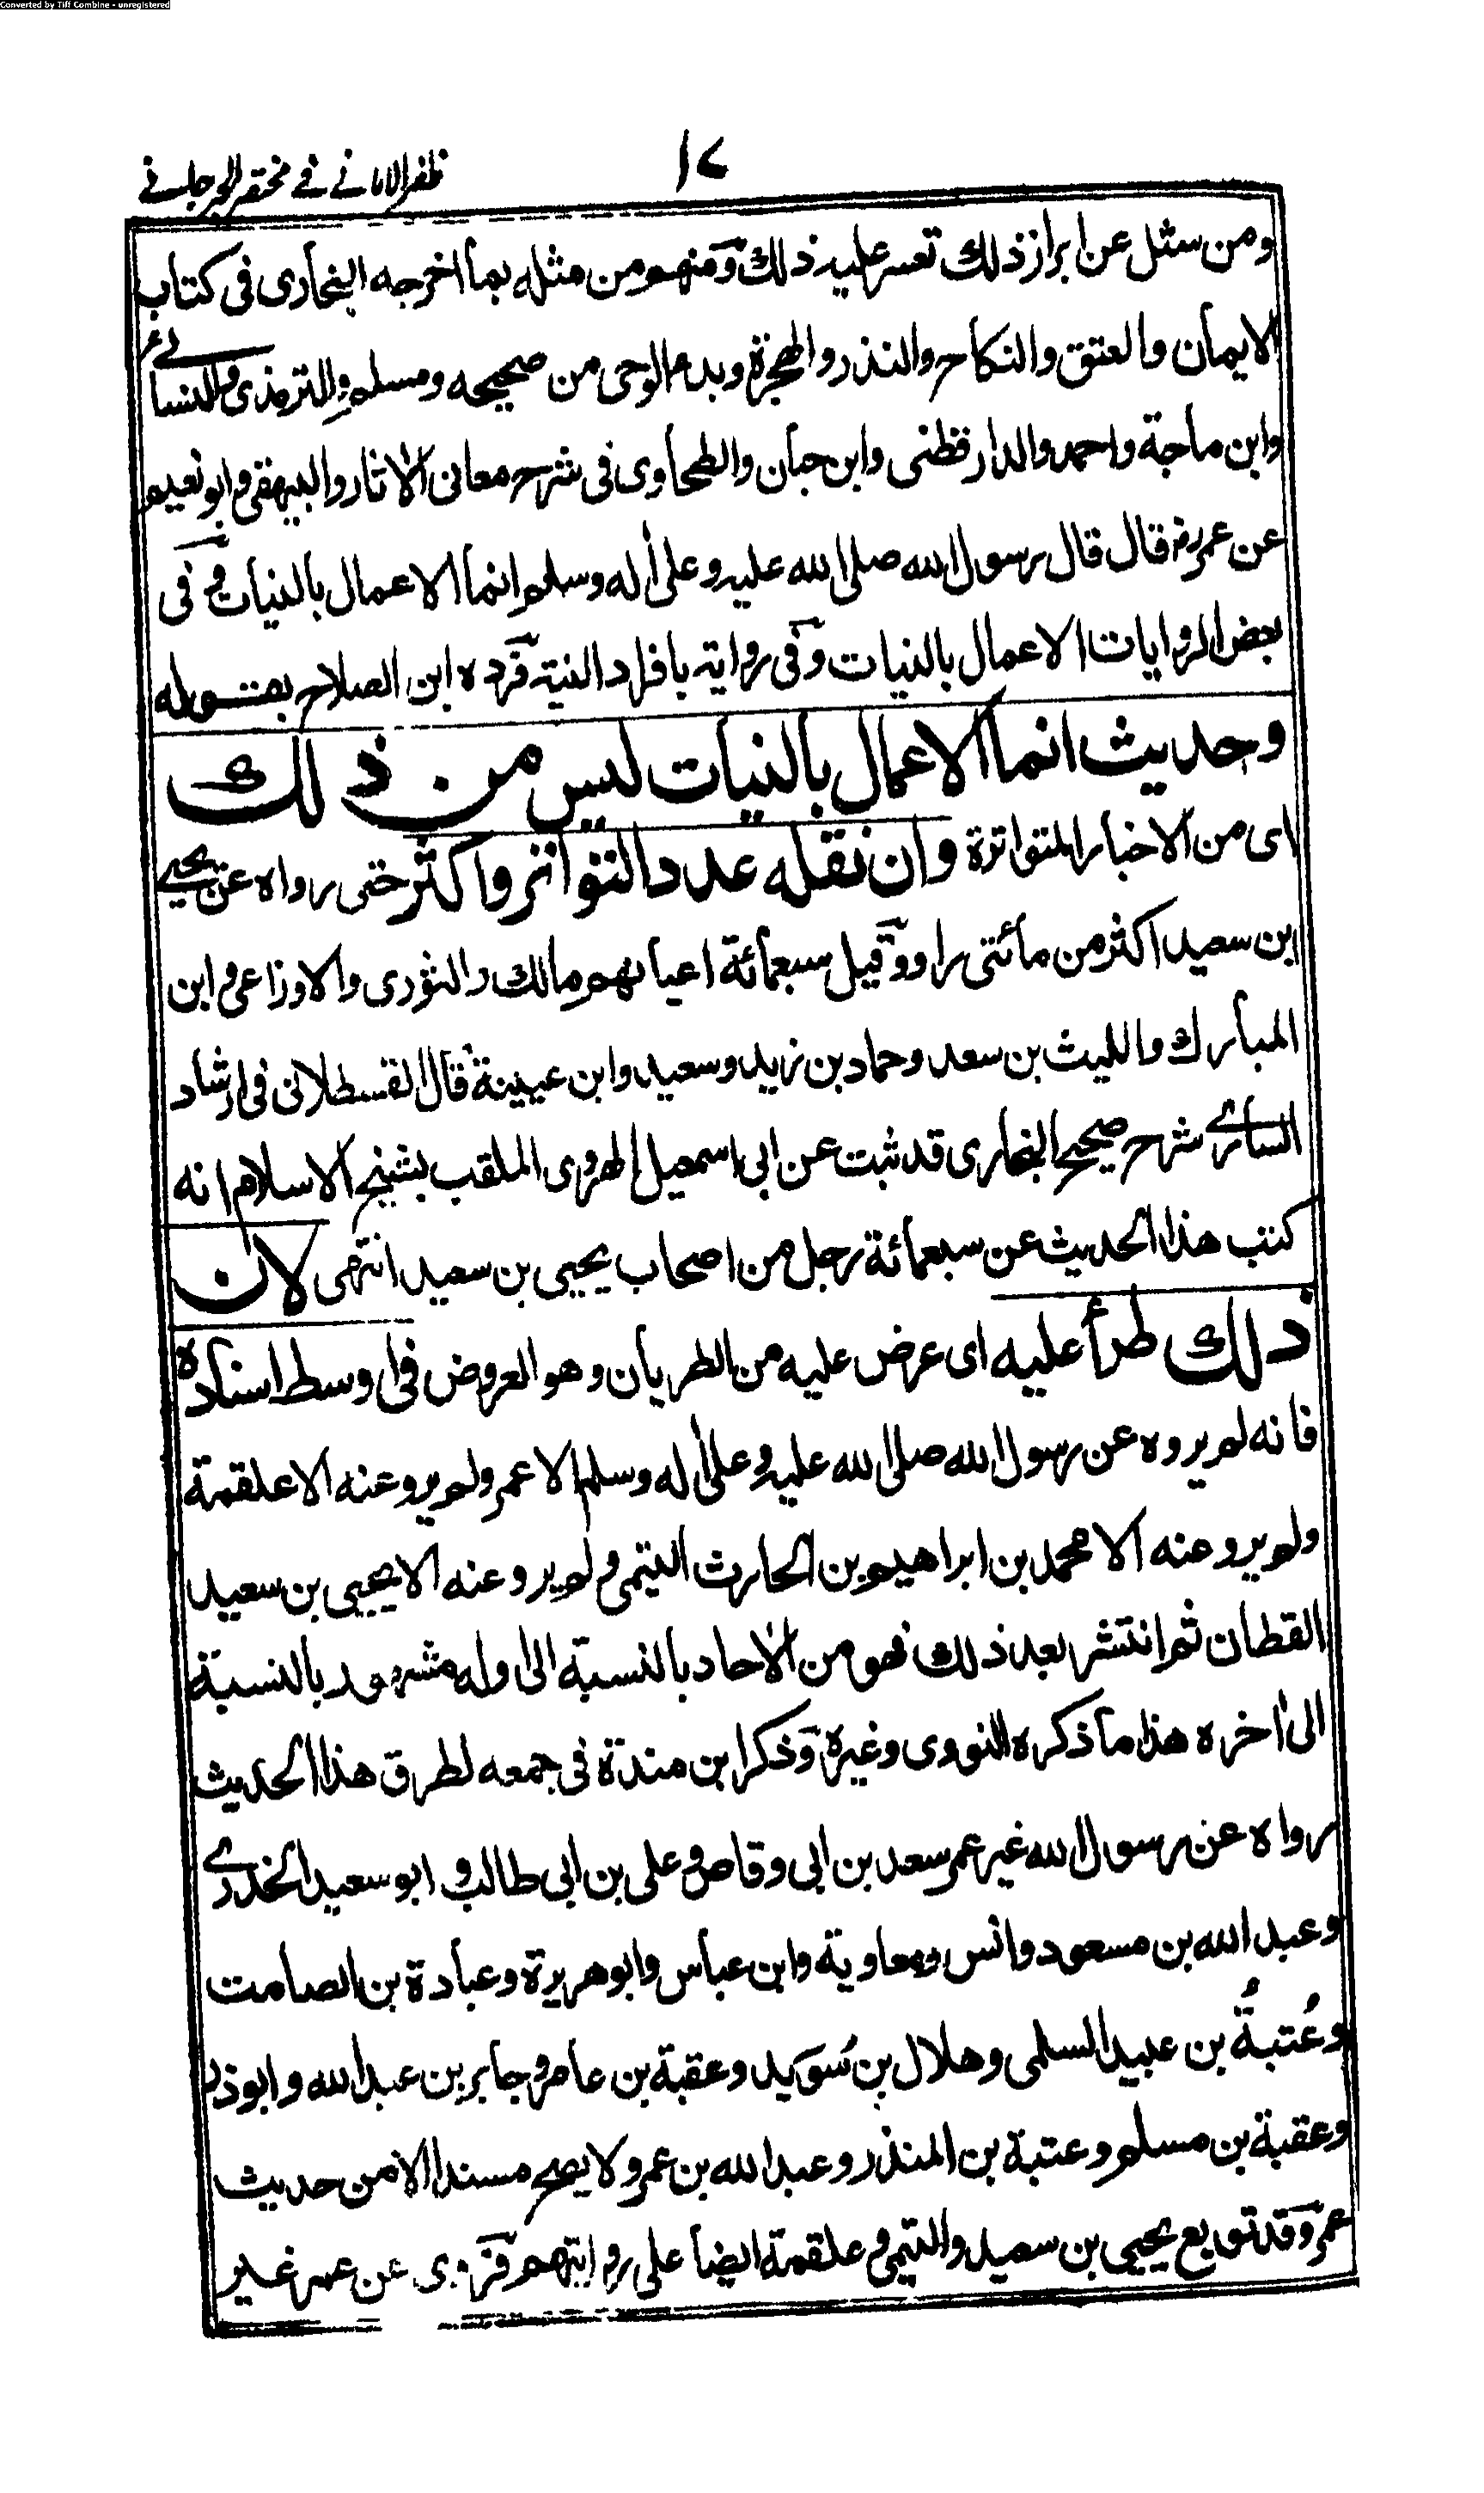 Converted by Tiff Combine - unregistered
١٧
ظفر الامانے فے مختصر الجرجانے
ومن سئل عن ابراز ذلك تعسر عليه ذلك ومنهم من مثله بما اخرجه البخاری فی كتاب
الایمان والعتق والنكاح والنذر والهجرة وبدء الوحی من صحیحه ومسلم والترمذی والنسائے
وابن ماجة واحمد والدارقطنی وابن حبان والطحاوی فی شرح معانی الاٰثار والبیهقی وابو نعیم
عن عمررض قال قال رسول الله صلی الله علیه وعلیٰ اٰله وسلم انما الاعمال بالنیات وفی
بعض الروایات الاعمال بالنیات وفی روایة بافراد النیة فرده ابن الصلاح بقوله
وحدیث انما الاعمال بالنیات لیس من ذلك
ای من الاخبار المتواترة وان نقله عدد التواتر واكثر حتی رواه عن یحیے
ابن سعید اكثر من مائتی راو وقیل سبعمائة اعیانهم مالك والثوری والاوزاعی وابن
المبارك واللیث بن سعد وحماد بن زید وسعید وابن عیینة قال القسطلانی فی ارشاد
الساری شرح صحیح البخاری قد ثبت عن ابی اسمعیل الهروی الملقب بشیخ الاسلام انه
كتب هذا الحدیث عن سبعمائة رجل من اصحاب یحیی بن سعید انتهی لان
ذلك طرأ علیه ای عرض علیه من الطریان وهو العروض فی اوسط اسناده
فانه لم یروه عن رسول الله صلی الله علیه وعلیٰ اٰله وسلم الا عمر ولم یرو عنه الا علقمة
ولم یرو عنه الا محمد بن ابراهیم بن الحارث التیمی ولم یرو عنه الا یحیی بن سعید
القطان ثم انتشر بعد ذلك فهو من الاٰحاد بالنسبة الی اوله مشهور بالنسبة
الی اٰخره هذا ما ذكره النووی وغیره وذكر ابن مندة فی جمعه لطرق هذا الحدیث
رواه عن رسول الله غیر عمر سعد بن ابی وقاص وعلی بن ابی طالب وابو سعید الخدرے
وعبد الله بن مسعود وانس ومعاویة وابن عباس وابو هریرة وعبادة بن الصامت
وعُتبةُ بن عبید السلمی وهلال بن سُوید وعقبة بن عامر وجابر بن عبد الله وابو ذر
وعقبة بن مسلم وعتبة بن المنذر وعبد الله بن عمر ولا یصح مسندا الا من حدیث
عمر وقد توبع یحیی بن سعید والتیمی وعلقمة ایضا علی روایتهم فروی عن عمر غیر